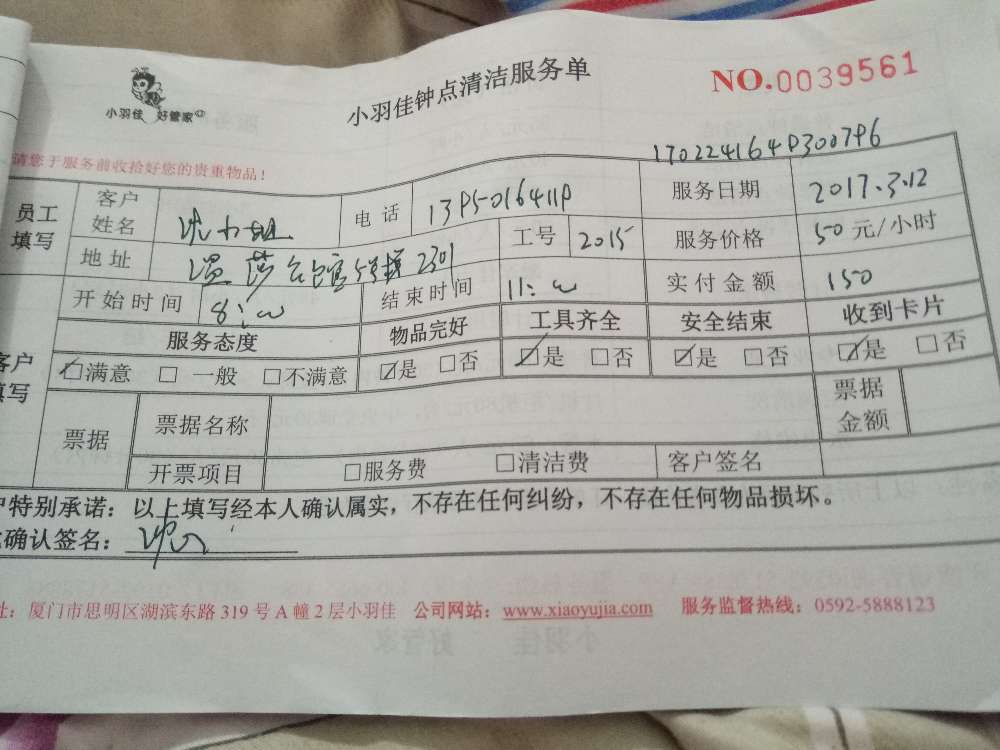 小羽佳 好管家
小羽佳钟点清洁服务单
NO.0039561
请您于服务前收拾好您的贵重物品!
170224164P300796
员工填写 客户姓名 沈小姐 电话 13950164119 服务日期 2017.3.12
地址 温莎公馆 2301 工号 2015 服务价格 50元/小时
开始时间 8:00 结束时间 11:00 实付金额 150
客户填写 服务态度 物品完好 工具齐全 安全结束 收到卡片
☑满意 □一般 □不满意 ☑是 □否 ☑是 □否 ☑是 □否 ☑是 □否
票据 票据名称 票据金额
开票项目 □服务费 □清洁费 客户签名
户特别承诺:以上填写经本人确认属实,不存在任何纠纷,不存在任何物品损坏。
确认签名:
址:厦门市思明区湖滨东路319号A幢2层小羽佳 公司网站:www.xiaoyujia.com 服务监督热线:0592-5888123